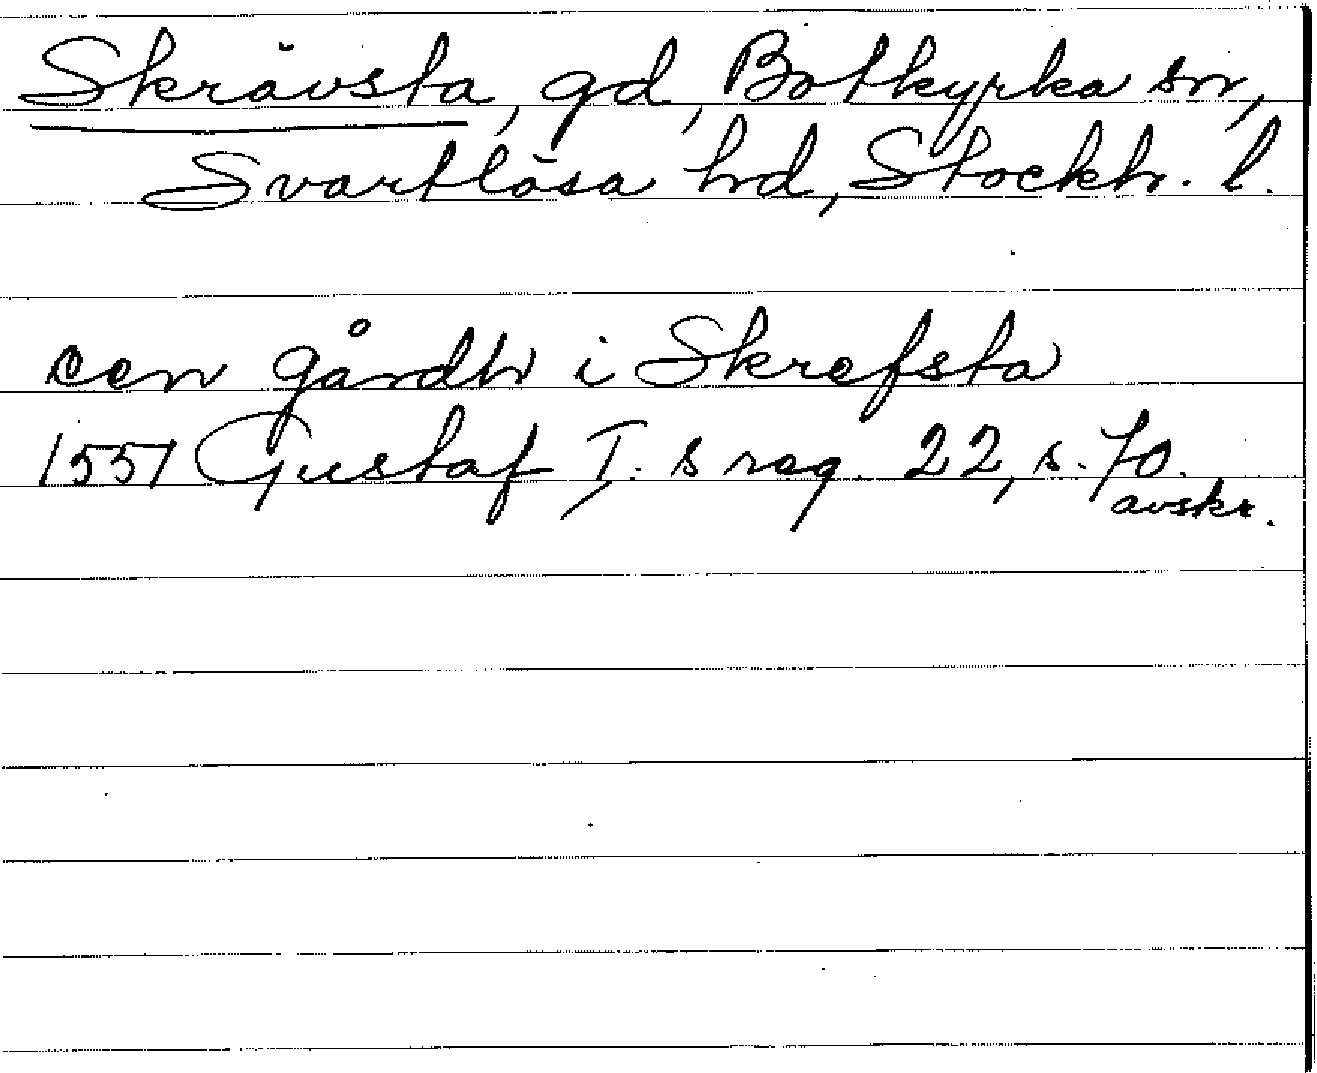 Skrävsta, gd, Botkyrka sn,
Svartlösa hd, Stockh. l.
een gårdh i Skrefsta
1557 Gustaf I:s reg. 22, s. 70.
avskr.